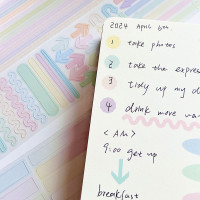 2024 April 6th
1 take photos
2 take the expre
3 tidy up my d
4 drink more wa
<AM>
9:00 get up
breakfast